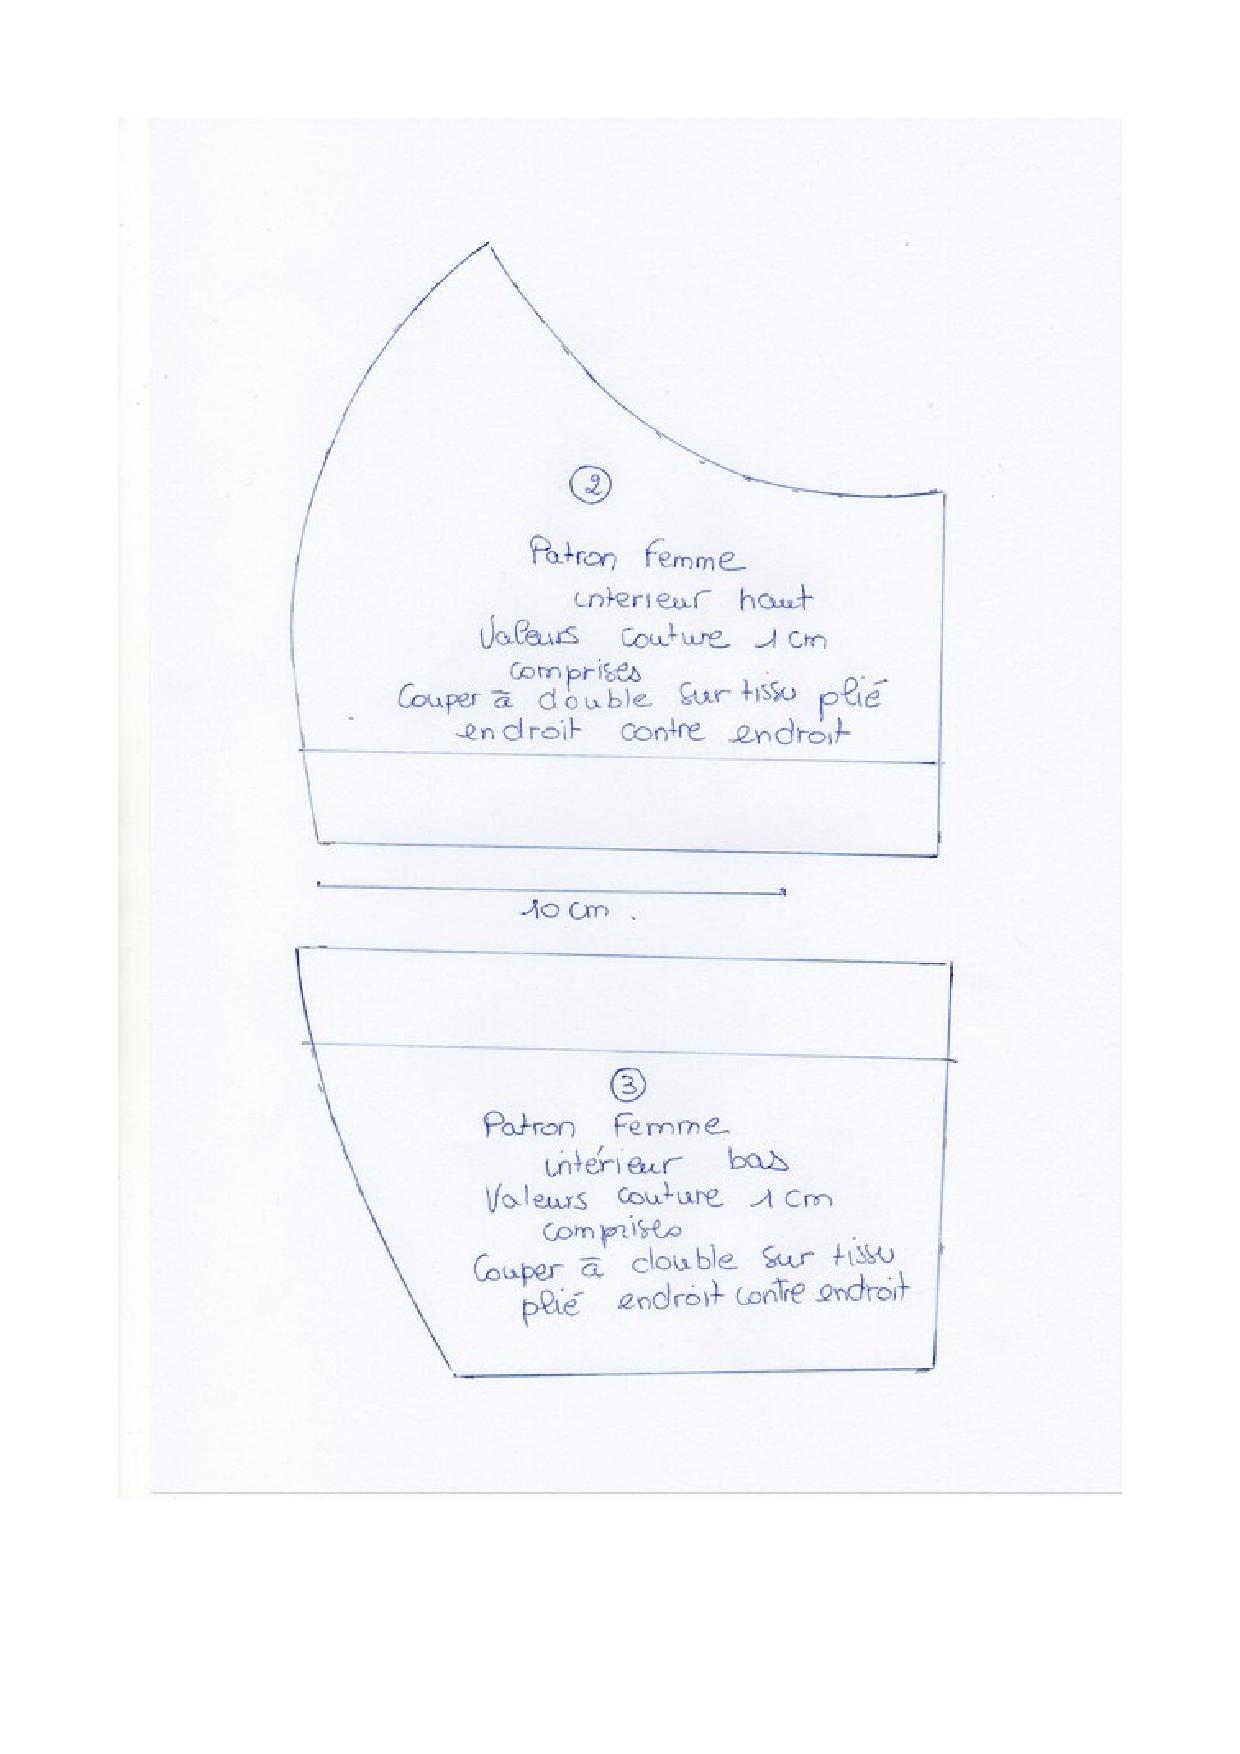 2
Patron Femme
interieur haut
Valeurs couture 1 cm
comprises
Couper à double sur tissu plié
endroit contre endroit
10 cm .
3
Patron Femme
intérieur bas
Valeurs couture 1 cm
comprises
Couper à double sur tissu
plié endroit contre endroit